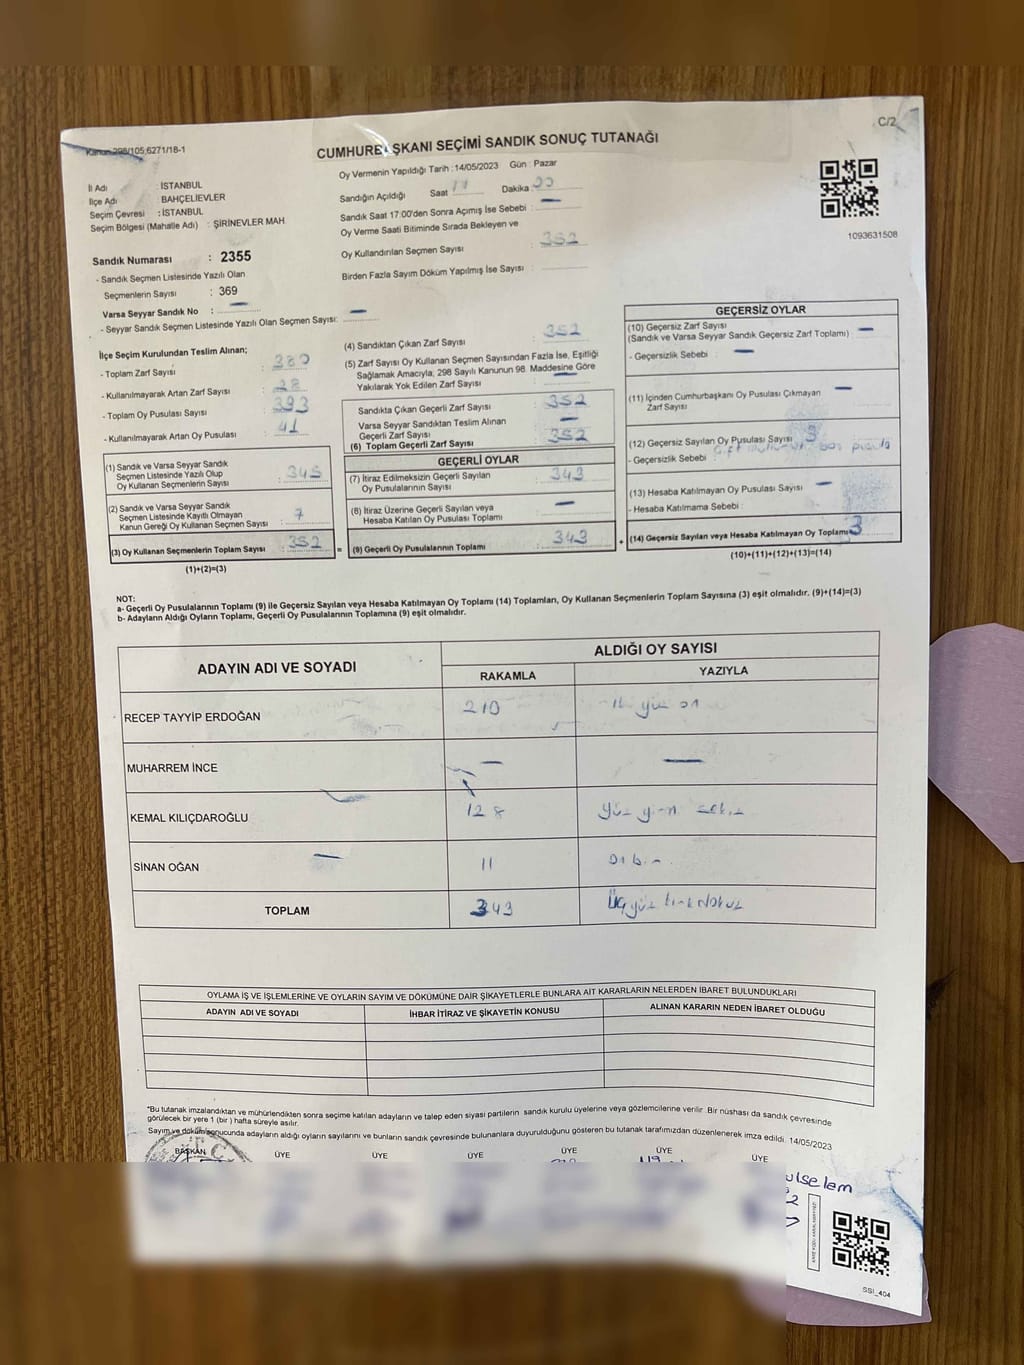 C/2
Kanun 298/105;6271/18-1
CUMHURBAŞKANI SEÇİMİ SANDIK SONUÇ TUTANAĞI
İl Adı : İSTANBUL
İlçe Adı : BAHÇELİEVLER
Seçim Çevresi : İSTANBUL
Seçim Bölgesi (Mahalle Adı) : ŞİRİNEVLER MAH
Sandık Numarası : 2355
- Sandık Seçmen Listesinde Yazılı Olan
Seçmenlerin Sayısı : 369
Varsa Seyyar Sandık No : —
- Seyyar Sandık Seçmen Listesinde Yazılı Olan Seçmen Sayısı: —
Oy Vermenin Yapıldığı Tarih :14/05/2023 Gün : Pazar
Sandığın Açıldığı Saat Dakika
Sandık Saat 17:00'den Sonra Açımış İse Sebebi : —
Oy Verme Saati Bitiminde Sırada Bekleyen ve
Oy Kullandırılan Seçmen Sayısı : 352
Birden Fazla Sayım Döküm Yapılmış İse Sayısı :
1093631508
İlçe Seçim Kurulundan Teslim Alınan;
- Toplam Zarf Sayısı : 380
- Kullanılmayarak Artan Zarf Sayısı : 28
- Toplam Oy Pusulası Sayısı : 393
- Kullanılmayarak Artan Oy Pusulası : 41
(1) Sandık ve Varsa Seyyar Sandık
Seçmen Listesinde Yazılı Olup
Oy Kullanan Seçmenlerin Sayısı : 345
(2) Sandık ve Varsa Seyyar Sandık
Seçmen Listesinde Kayıtlı Olmayan
Kanun Gereği Oy Kullanan Seçmen Sayısı : 7
(3) Oy Kullanan Seçmenlerin Toplam Sayısı : 352
(1)+(2)=(3)
(4) Sandıktan Çıkan Zarf Sayısı : 352
(5) Zarf Sayısı Oy Kullanan Seçmen Sayısından Fazla İse, Eşitliği
Sağlamak Amacıyla, 298 Sayılı Kanunun 98. Maddesine Göre
Yakılarak Yok Edilen Zarf Sayısı : —
Sandıkta Çıkan Geçerli Zarf Sayısı : 352
Varsa Seyyar Sandıktan Teslim Alınan
Geçerli Zarf Sayısı : —
(6) Toplam Geçerli Zarf Sayısı : 352
=
GEÇERLİ OYLAR
(7) İtiraz Edilmeksizin Geçerli Sayılan
Oy Pusulalarının Sayısı : 343
(8) İtiraz Üzerine Geçerli Sayılan veya
Hesaba Katılan Oy Pusulası Toplamı : —
(9) Geçerli Oy Pusulalarının Toplamı : 343
+
GEÇERSİZ OYLAR
(10) Geçersiz Zarf Sayısı : —
(Sandık ve Varsa Seyyar Sandık Geçersiz Zarf Toplamı)
- Geçersizlik Sebebi : —
(11) İçinden Cumhurbaşkanı Oy Pusulası Çıkmayan : —
Zarf Sayısı
(12) Geçersiz Sayılan Oy Pusulası Sayısı :
- Geçersizlik Sebebi : çift boş pusula
(13) Hesaba Katılmayan Oy Pusulası Sayısı : —
- Hesaba Katılmama Sebebi :
(14) Geçersiz Sayılan veya Hesaba Katılmayan Oy Toplamı : 3
(10)+(11)+(12)+(13)=(14)
NOT:
a- Geçerli Oy Pusulalarının Toplamı (9) ile Geçersiz Sayılan veya Hesaba Katılmayan Oy Toplamı (14) Toplamları, Oy Kullanan Seçmenlerin Toplam Sayısına (3) eşit olmalıdır. (9)+(14)=(3)
b- Adayların Aldığı Oyların Toplamı, Geçerli Oy Pusulalarının Toplamına (9) eşit olmalıdır.
ADAYIN ADI VE SOYADI
ALDIĞI OY SAYISI
RAKAMLA YAZIYLA
RECEP TAYYİP ERDOĞAN 210 iki yüz on
MUHARREM İNCE — —
KEMAL KILIÇDAROĞLU 128 yüz yirmi sekiz
SİNAN OĞAN 11 on bir
TOPLAM 343 Üçyüz kırkdokuz
OYLAMA İŞ VE İŞLEMLERİNE VE OYLARIN SAYIM VE DÖKÜMÜNE DAİR ŞİKAYETLERLE BUNLARA AİT KARARLARIN NELERDEN İBARET BULUNDUKLARI
ADAYIN ADI VE SOYADI İHBAR İTİRAZ VE ŞİKAYETİN KONUSU ALINAN KARARIN NEDEN İBARET OLDUĞU
*Bu tutanak imzalandıktan ve mühürlendikten sonra seçime katılan adayların ve talep eden siyasi partilerin sandık kurulu üyelerine veya gözlemcilerine verilir. Bir nüshası da sandık çevresinde
görülecek bir yere 1 (bir) hafta süreyle asılır.
Sayım ve döküm sonucunda adayların aldığı oyların sayılarını ve bunların sandık çevresinde bulunanlara duyurulduğunu gösteren bu tutanak tarafımızdan düzenlenerek imza edildi. 14/05/2023
BAŞKAN ÜYE ÜYE ÜYE ÜYE ÜYE ÜYE
SSI_404